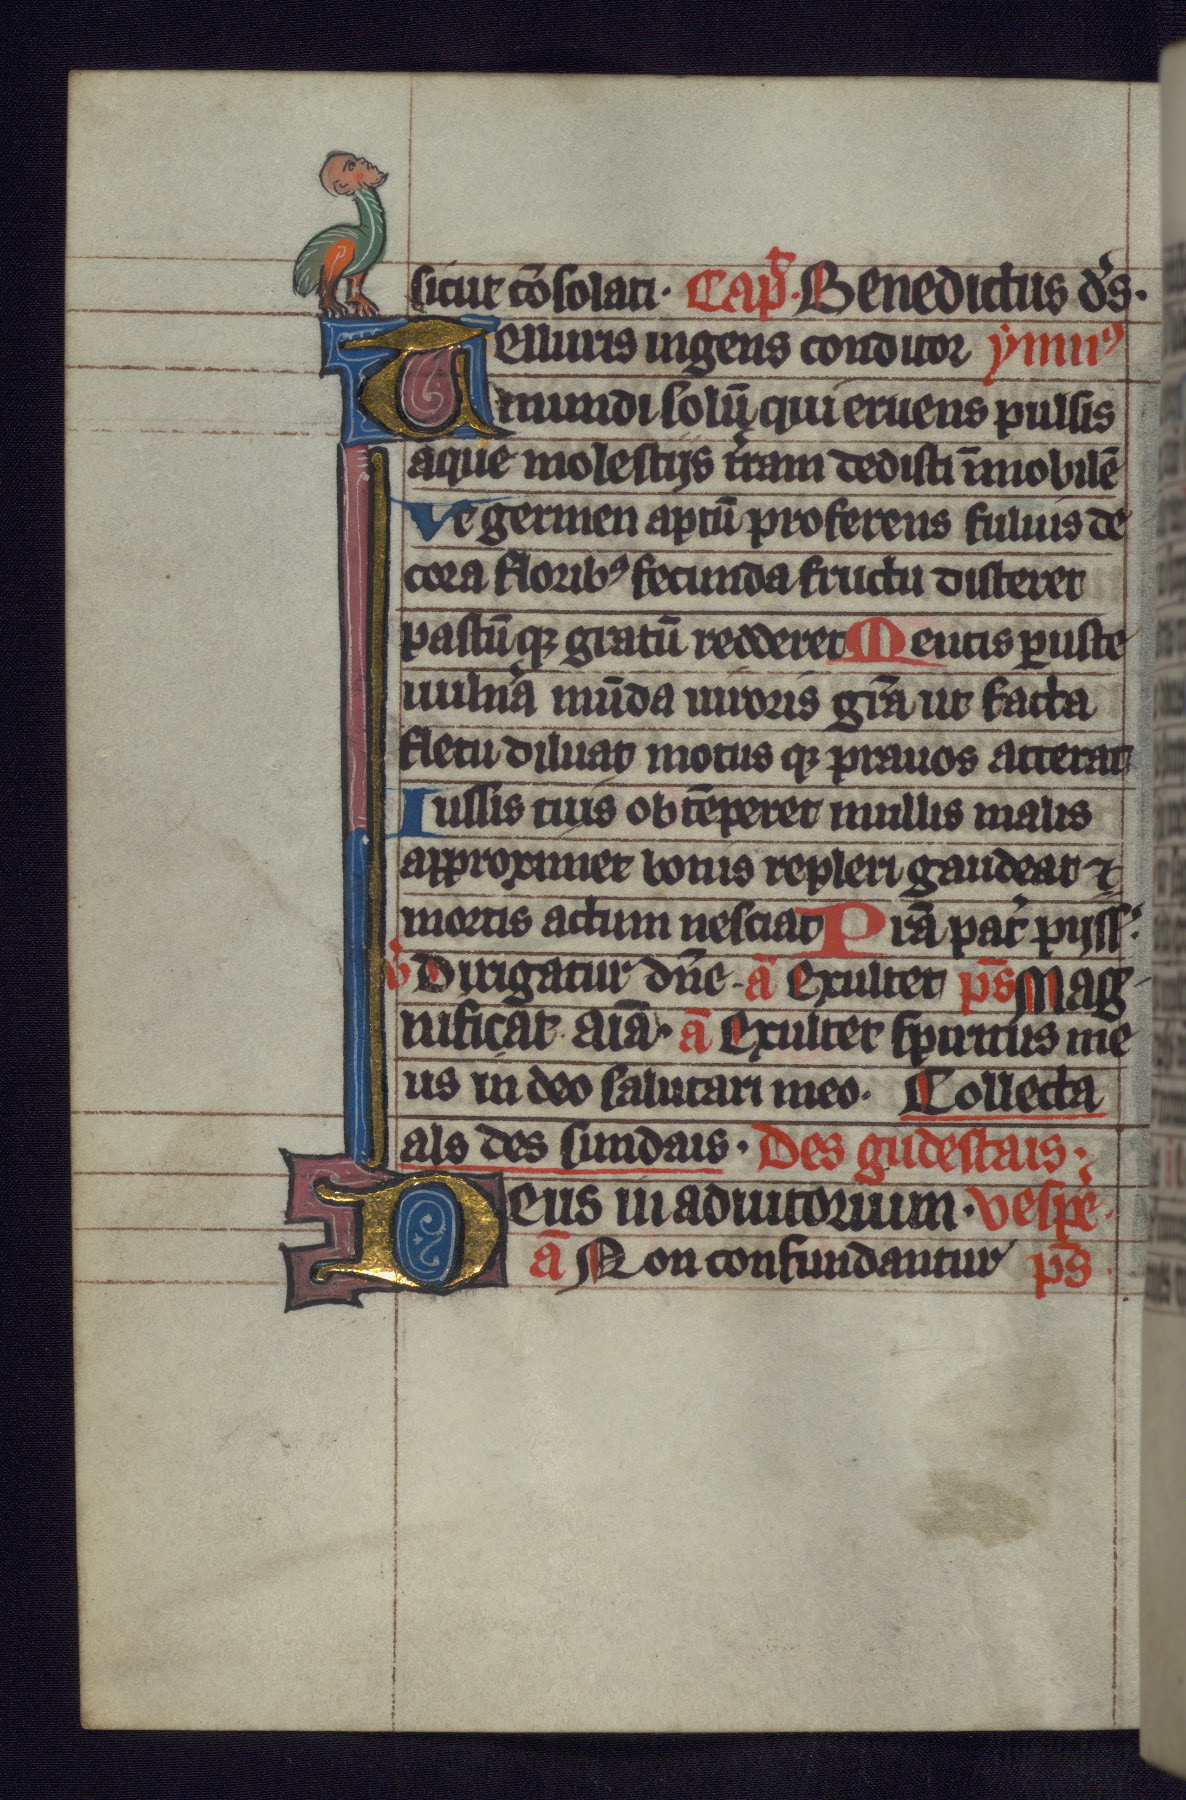 sicut cōsolati· Cap̄· Benedictus ds̄·
Telluris ingens conditor ymn⁹
mundi solū qui eruens pulsis
aque molestijs tr̄ram dedisti īmobilē
Vt germen aptū proferens fuluis de
cora florib⁹ fecunda fructu disteret
pastūqꝫ gratū redderet Mentis ꝑuste
uulnā mūda uiroris gr̄a ut facta
fletu diluat motus qꝫ prauos atterat
Iussis tuis obtēperet nullis malis
approximet bonis repleri gaudeat ⁊
mortis actum nesciat Pr̄ā pat̄ pijss̄·
v̄ Dirigatur dn̄e· ā Exultet ps̄ Mag
nificat aīa· ā Exultet spiritus me
us in deo salutari meo· Collecta
als des sundais· Des gudestais·
Deus in adiutorium· vesꝑe·
ā Non confundantur ps̄·